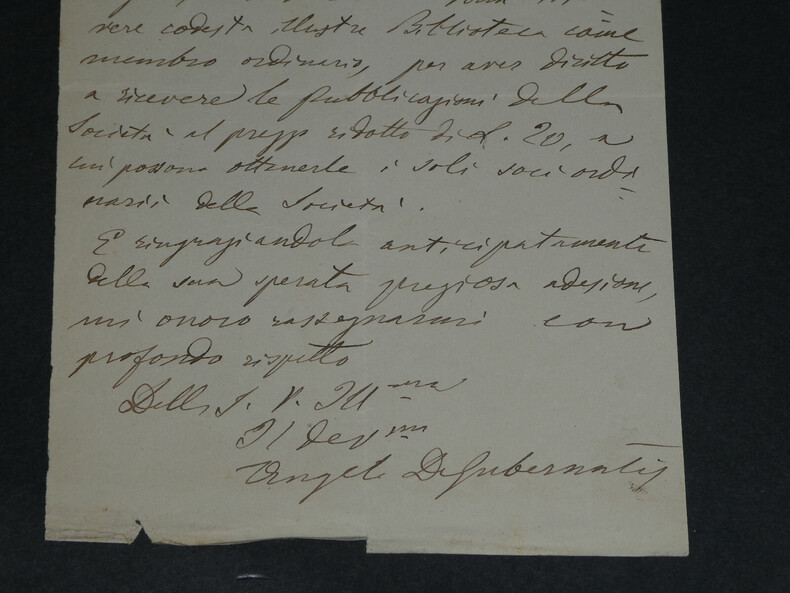 vere codesta illustre Biblioteca come
membro ordinario, per aver diritto
a ricevere le pubblicazioni della
Società al prezzo ridotto di L. 20, a
cui possono ottenerle i soli soci ordi-
narii della Società.
E ringraziandola anticipatamente
della sua sperata preziosa adesione,
mi onoro rassegnarmi con
profondo rispetto
Della S. V. Ill.ma
Il dev.mo
Angelo DeGubernatis